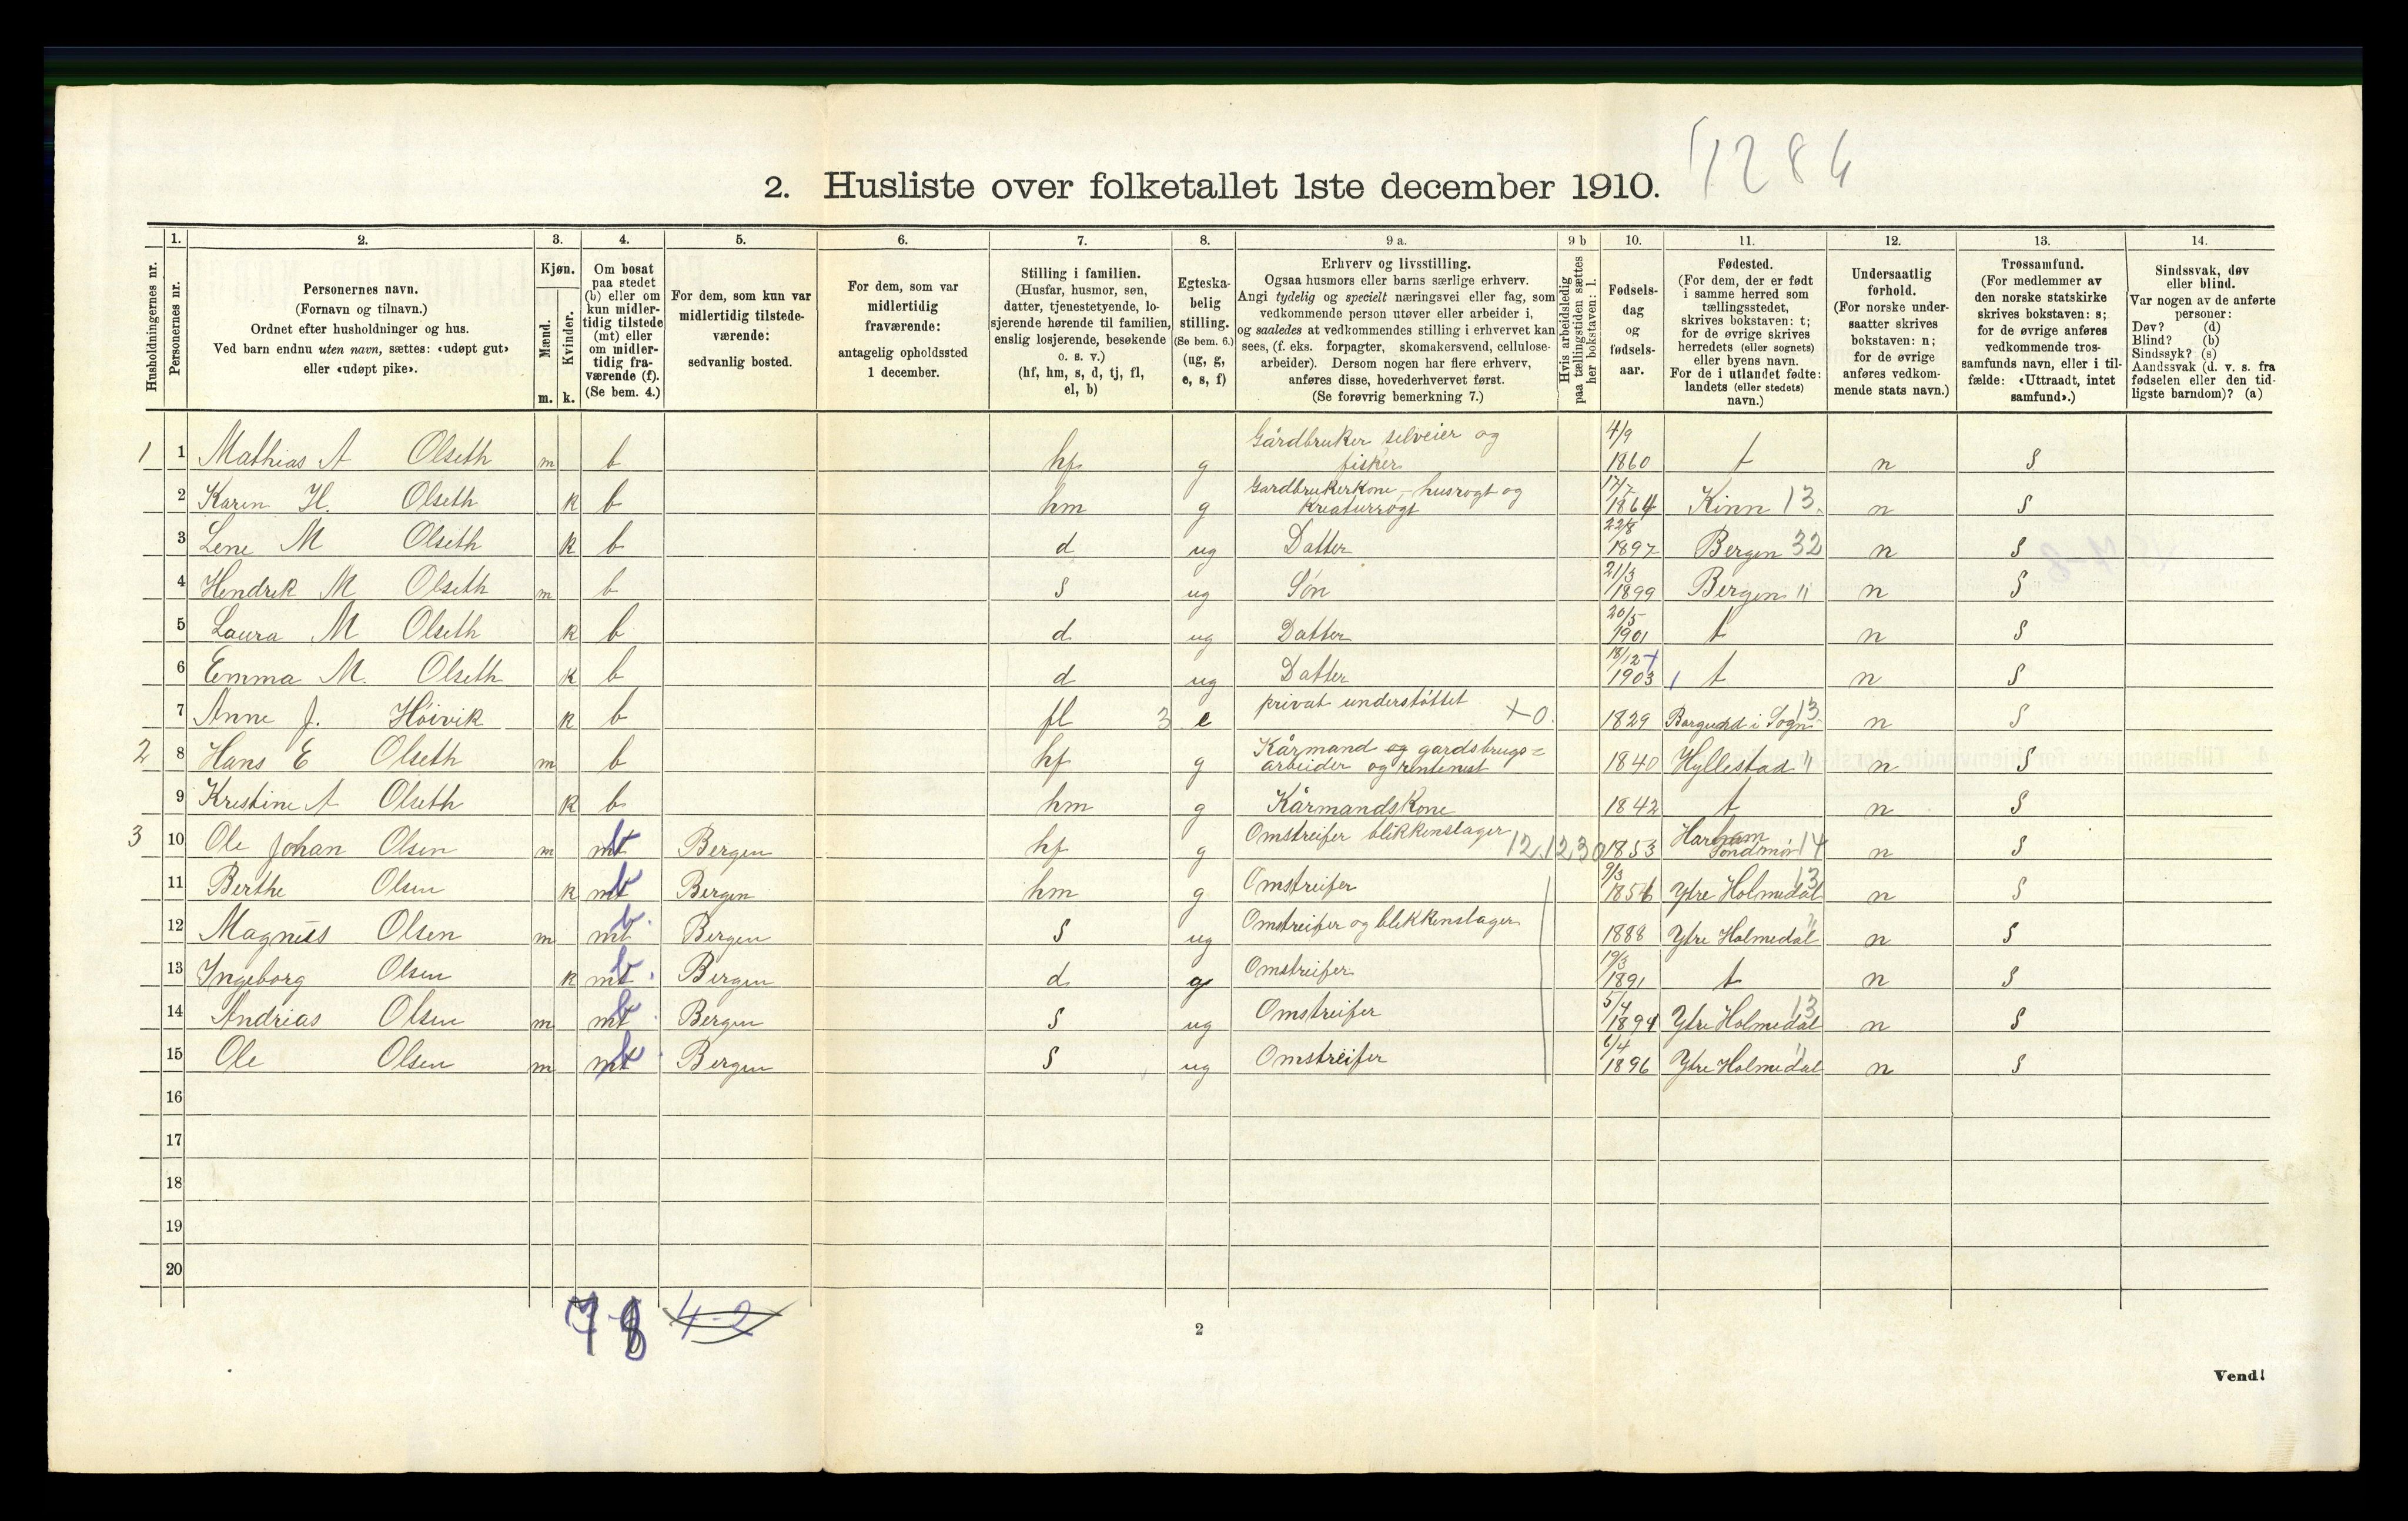 1284
2. Husliste over folketallet 1ste december 1910.
Husholdningernes nr.
1.
Personernes nr.
2.
Personernes navn.
(Fornavn og tilnavn.)
Ordnet efter husholdninger og hus.
Ved barn endnu uten navn, sættes: «udøpt gut»
eller «udøpt pike».
3.
Kjøn.
Mænd.
Kvinder.
m. k.
4.
Om bosat
paa stedet
(b) eller om
kun midler-
tidig tilstede
(mt) eller
om midler-
tidig fra-
værende (f).
(Se bem. 4.)
5.
For dem, som kun var
midlertidig tilstede-
værende:
sedvanlig bosted.
6.
For dem, som var
midlertidig
fraværende:
antagelig opholdssted
1 december.
7.
Stilling i familien.
(Husfar, husmor, søn,
datter, tjenestetyende, lo-
sjerende hørende til familien,
enslig losjerende, besøkende
o. s. v.)
(hf, hm, s, d, tj, fl,
el, b)
8.
Egteska-
belig
stilling.
(Se bem. 6.)
(ug, g,
e, s, f)
9 a.
Erhverv og livsstilling.
Ogsaa husmors eller barns særlige erhverv.
Angi tydelig og specielt næringsvei eller fag, som
vedkommende person utøver eller arbeider i,
og saaledes at vedkommendes stilling i erhvervet kan
sees, (f. eks. forpagter, skomakersvend, cellulose-
arbeider). Dersom nogen har flere erhverv,
anføres disse, hovederhvervet først.
(Se forøvrig bemerkning 7.)
9 b
Hvis arbeidsledig
paa tællingstiden sættes
her bokstaven: l.
10.
Fødsels-
dag
og
fødsels-
aar.
11.
Fødested.
(For dem, der er født
i samme herred som
tællingsstedet,
skrives bokstaven: t;
for de øvrige skrives
herredets (eller sognets)
eller byens navn.
For de i utlandet fødte:
landets (eller stedets)
navn.)
12.
Undersaatlig
forhold.
(For norske under-
saatter skrives
bokstaven: n;
for de øvrige
anføres vedkom-
mende stats navn.)
13.
Trossamfund.
(For medlemmer av
den norske statskirke
skrives bokstaven: s;
for de øvrige anføres
vedkommende tros-
samfunds navn, eller i til-
fælde: «Uttraadt, intet
samfund».)
14.
Sindssvak, døv
eller blind.
Var nogen av de anførte
personer:
Døv? (d)
Blind? (b)
Sindssyk? (s)
Aandssvak (d. v. s. fra
fødselen eller den tid-
ligste barndom)? (a)
1 1 Mathias A Olseth m b hf g Gårdbruker selveier og fisker 4/9 1860 t n s
2 Karen H. Olseth k b hm g Gardbrukerkone - husrøgt og kreaturrøgt 17/7 1864 Kinn 13 n s
3 Lene M Olseth k b d ug Datter 22/8 1897 Bergen 32 n s
4 Hendrik M Olseth m b s ug Søn 21/3 1899 Bergen " n s
5 Laura M Olseth k b d ug Datter 20/5 1901 t n s
6 Emma M. Olseth k b d ug Datter 18/12 1903 t n s
7 Anne J. Høivik k b fl 3 e privat understøttet +0. 1829 Borgund i Sogn 13 n s
2 8 Hans E Olseth m b hf g Kårmand og gardsbrugs= arbeider og rentenist 1840 Hyllestad " n s
9 Kristine A Olseth k b hm g Kårmandskone 1842 t n s
3 10 Ole Johan Olsen m mt b Bergen hf g Omstreifer blikkenslager 12.12.30 1853 Harham Søndmør 14 n s
11 Berthe Olsen k mt b Bergen hm g Omstreifer 9/3 1856 Ytre Holmedal 13 n s
12 Magnus Olsen m mt b Bergen s ug Omstreifer og blikkenslager 1888 Ytre Holmedal " n s
13 Ingeborg Olsen k mt b Bergen d g Omstreifer 19/3 1891 t n s
14 Andrias Olsen m mt b Bergen s ug Omstreifer 5/4 1894 Ytre Holmedal 13 n s
15 Ole Olsen m mt b Bergen s ug Omstreifer 6/4 1896 Ytre Holmedal " n s
16
17
18
19
20
7-8 4-2
2
Vend!